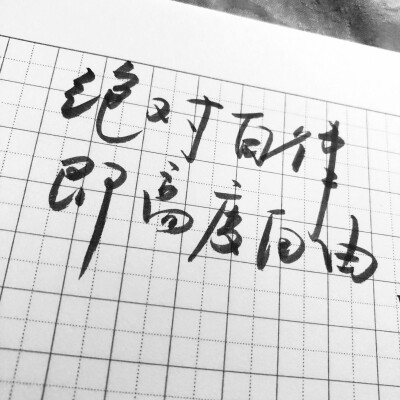 绝对自律
即高度自由